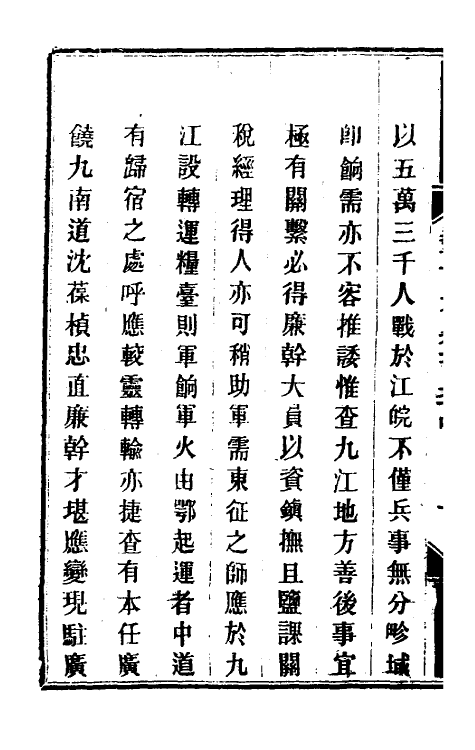 以五萬三千人戰於江皖不僅兵事無分畛域
卽餉需亦不容推諉惟查九江地方善後事宜
極有關繫必得廉幹大員以資鎭撫且鹽課關
稅經理得人亦可稍助軍需東征之師應於九
江設轉運糧臺則軍餉軍火由鄂起運者中道
有歸宿之處呼應較靈轉輸亦捷查有本任廣
饒九南道沈葆楨忠直廉幹才堪應變現駐廣